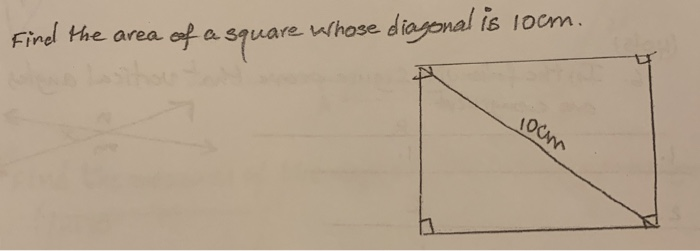 Find the area of a square whose diagonal is 10cm.
10cm